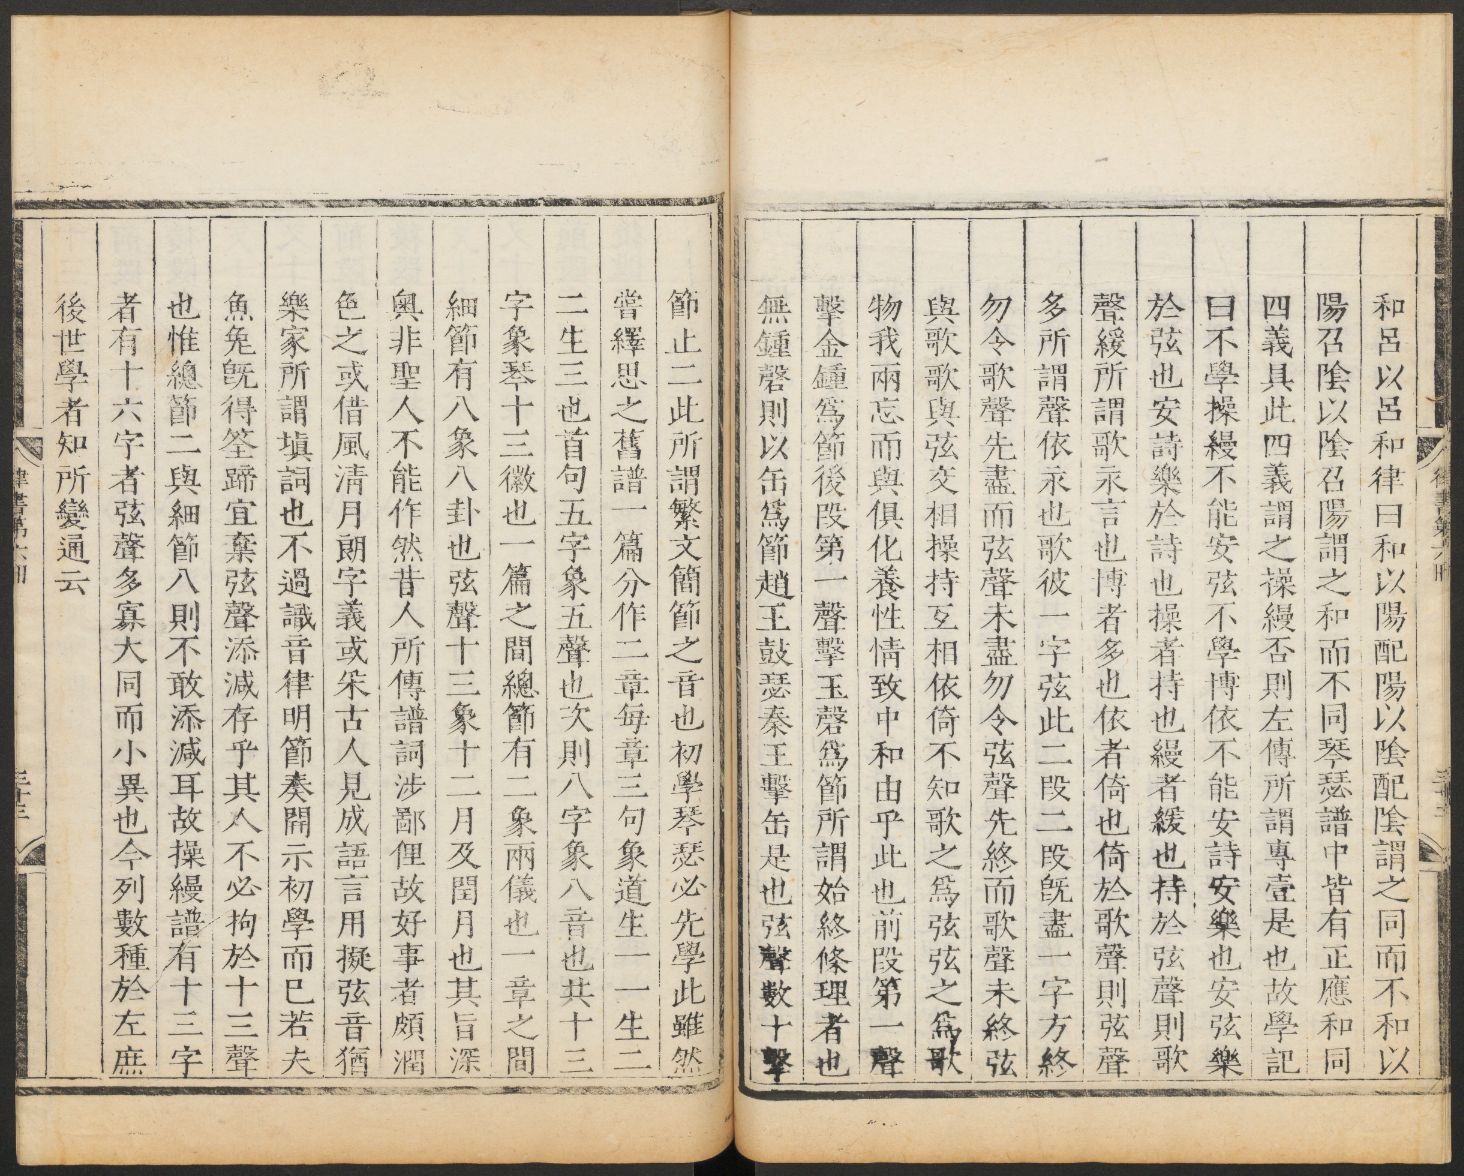 和呂以呂和律曰和以陽配陽以陰配陰謂之同而不和以
陽召陰以陰召陽謂之和而不同琴瑟譜中皆有正應和同
四義具此四義謂之操縵否則左傳所謂專壹是也故學記
曰不學操縵不能安弦不學博依不能安詩安樂也安弦樂
於弦也安詩樂於詩也操者持也縵者緩也持於弦聲則歌
聲緩所謂歌永言也博者多也依者倚也倚於歌聲則弦聲
多所謂聲依永也歌彼一字弦此二段二段旣盡一字方終
勿令歌聲先盡而弦聲未盡勿令弦聲先終而歌聲未終弦
與歌歌與弦交相操持互相依倚不知歌之爲弦弦之爲歌
物我兩忘而與俱化養性情致中和由乎此也前段第一聲
擊金鍾爲節後段第一聲擊玉磬爲節所謂始終條理者也
無鍾磬則以缶爲節趙王鼓瑟秦王擊缶是也弦聲數十擊
節止二此所謂繁文簡節之音也初學琴瑟必先學此雖然
嘗繹思之舊譜一篇分作二章每章三句象道生一一生二
二生三也首句五字象五聲也次則八字象八音也共十三
字象琴十三徽也一篇之間總節有二象兩儀也一章之間
細節有八象八卦也弦聲十三象十二月及閏月也其旨深
奧非聖人不能作然昔人所傳譜詞涉鄙俚故好事者頗潤
色之或借風清月朗字義或采古人見成語言用擬弦音猶
樂家所謂塡詞也不過識音律明節奏開示初學而已若夫
魚兔旣得筌蹄宜棄弦聲添減存乎其人不必拘於十三聲
也惟總節二與細節八則不敢添減耳故操縵譜有十三字
者有十六字者弦聲多寡大同而小異也今列數種於左庶
後世學者知所變通云
律書第六冊
三十三